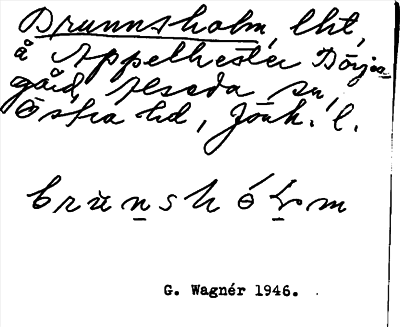 Brunnsholm, lht,
å Appelhester Börja-
gård, Alseda sn,
Östra hd, Jönk. l.
brùnshólm
G. Wagnér 1946.